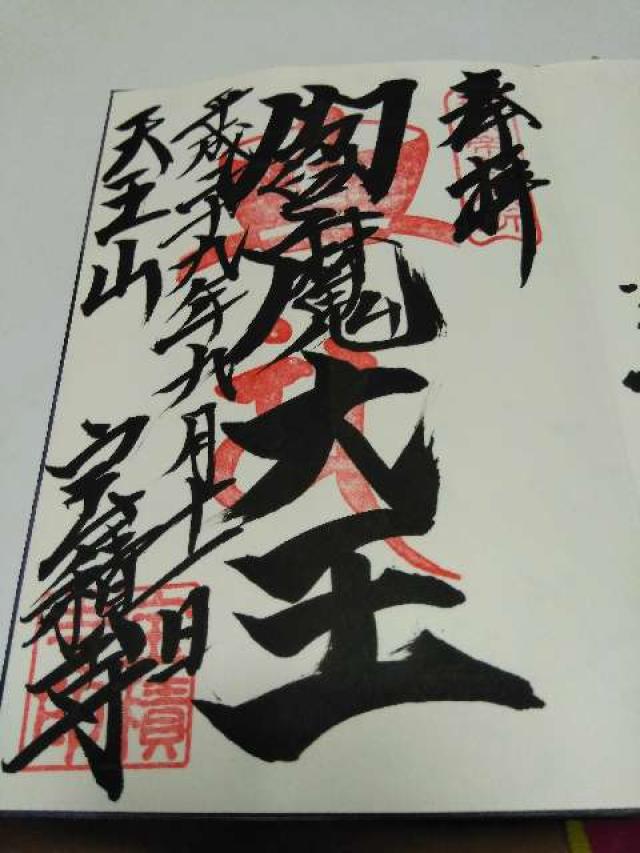 奉拝
閻魔大王
平成二十九年九月十一日
天王山
宝積寺